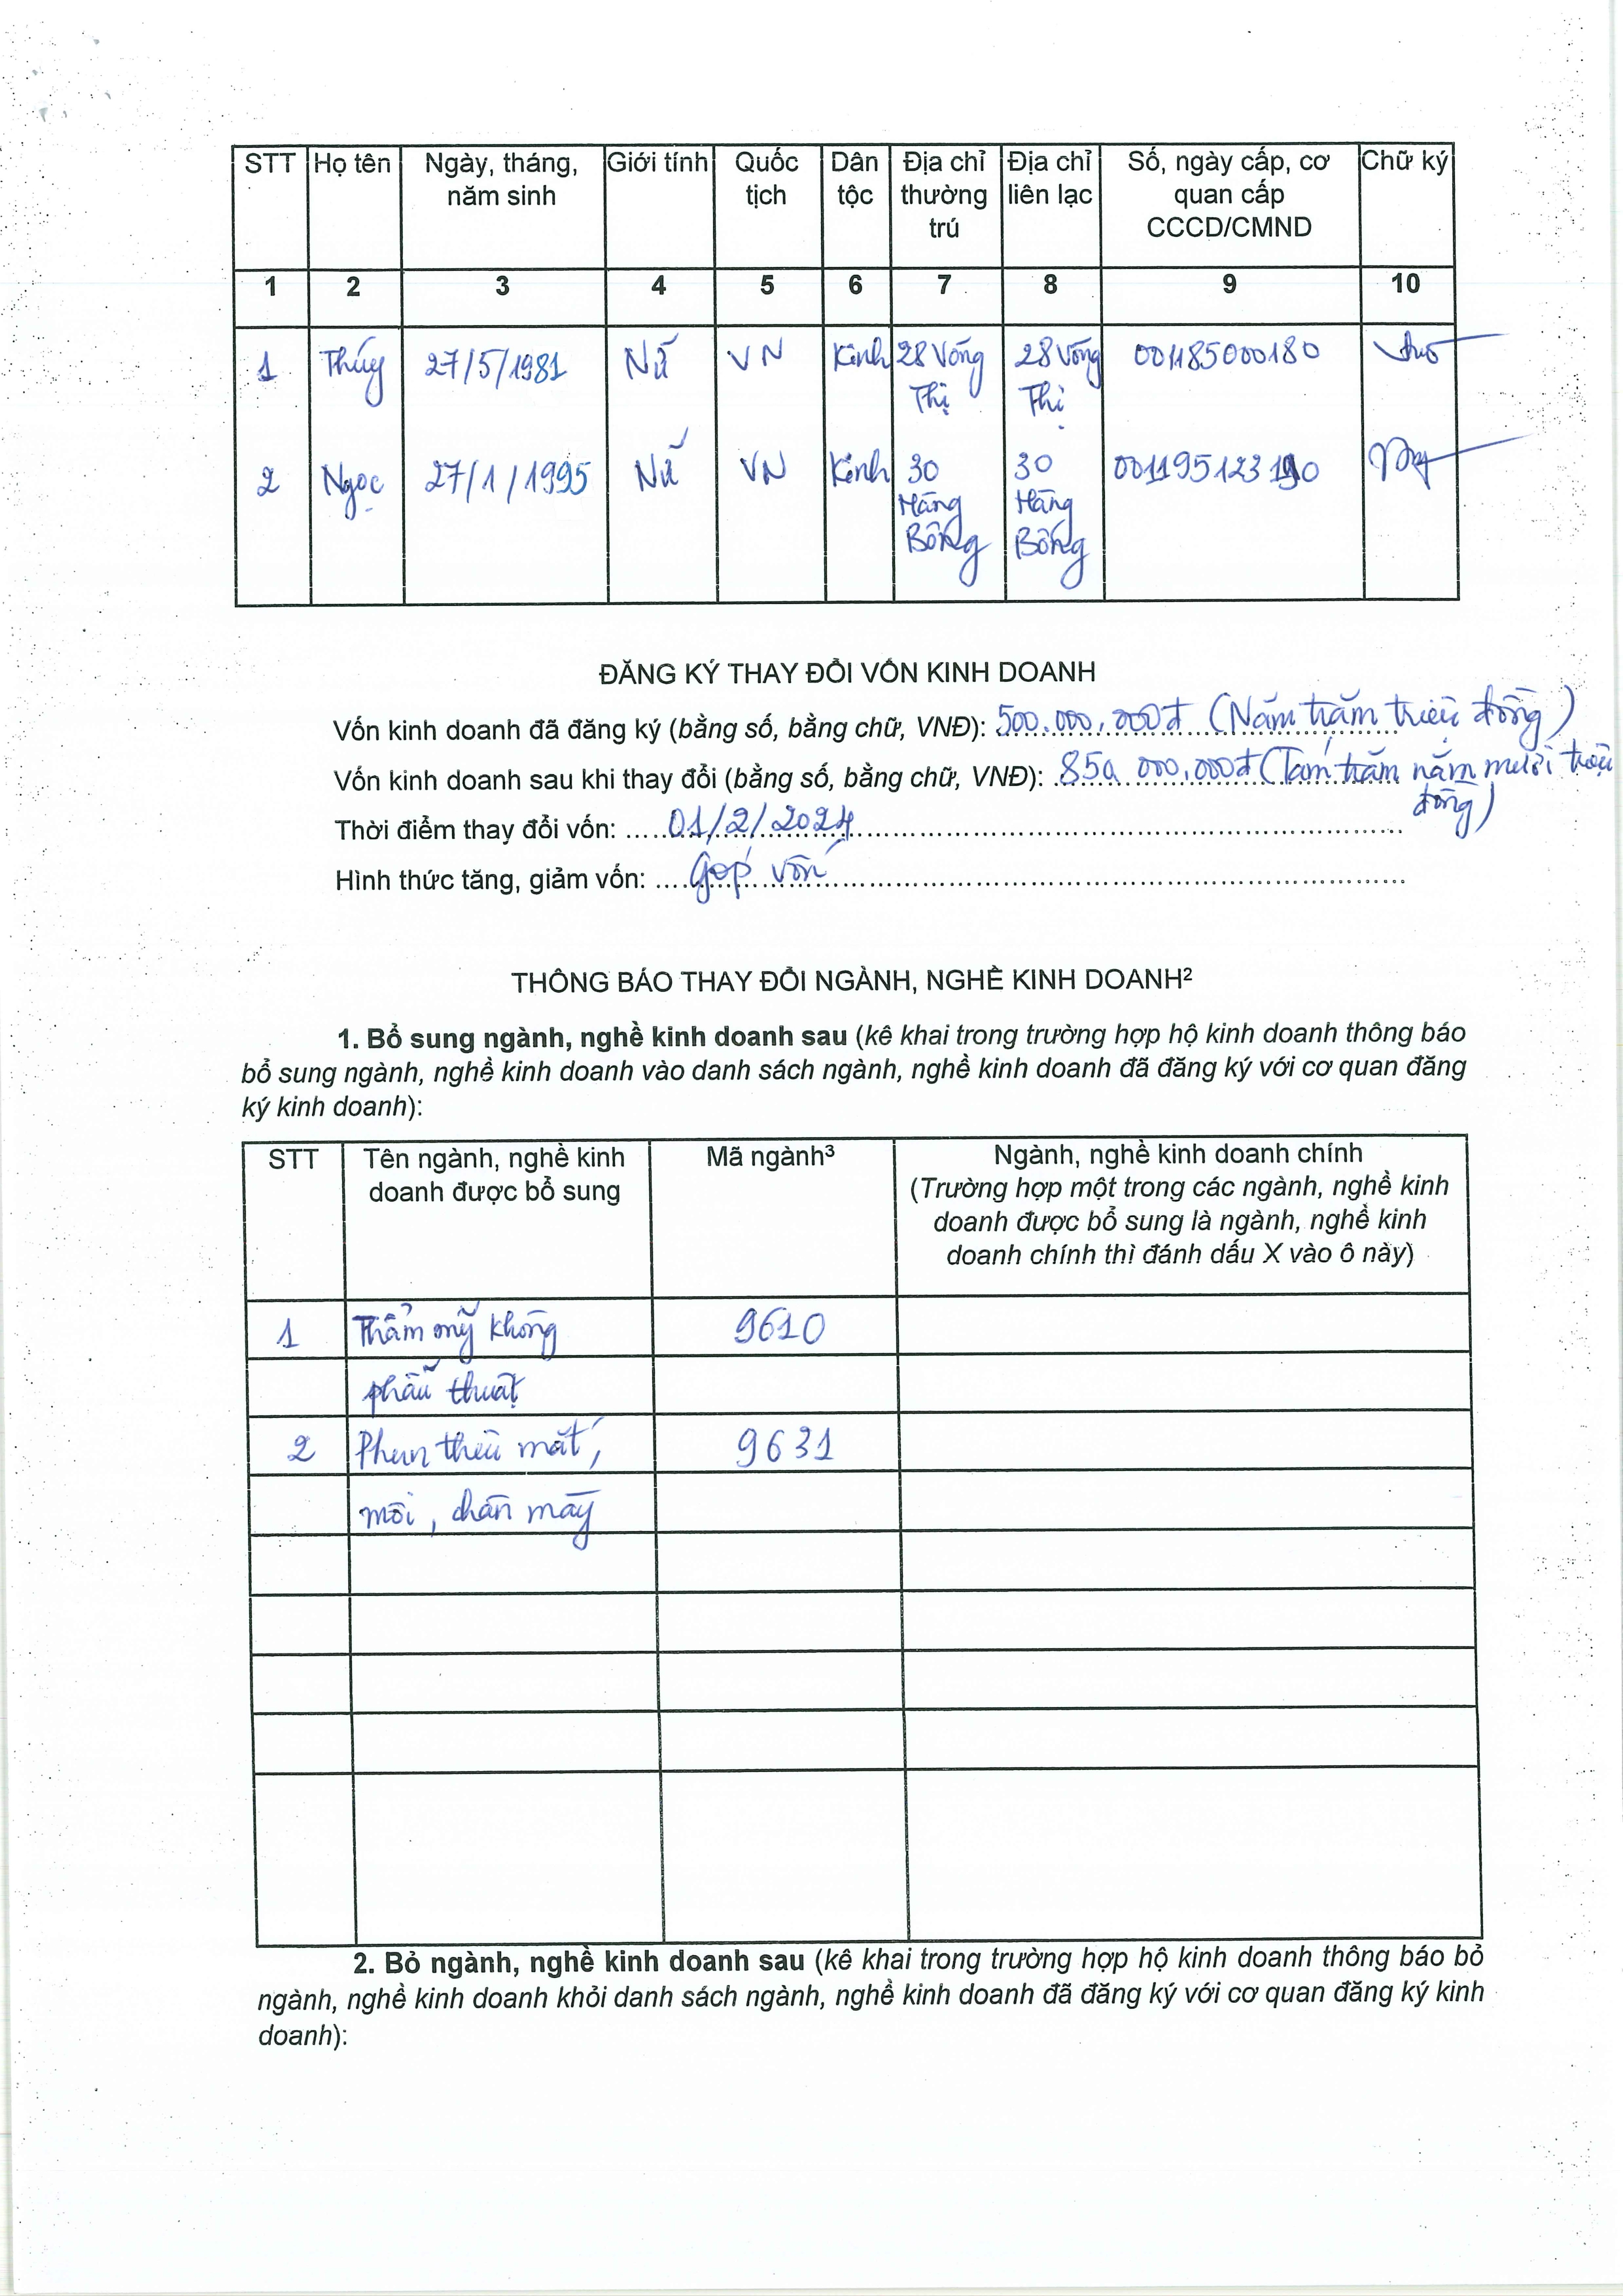 STT Họ tên Ngày, tháng, năm sinh Giới tính Quốc tịch Dân tộc Địa chỉ thường trú Địa chỉ liên lạc Số, ngày cấp, cơ quan cấp CCCD/CMND Chữ ký
1 2 3 4 5 6 7 8 9 10
1 Thúy 27/5/1981 Nữ VN Kinh 28 Võng Thị 28 Võng Thị 001185000180
2 Ngọc 27/1/1995 Nữ VN Kinh 30 Hàng Bông 30 Hàng Bông
ĐĂNG KÝ THAY ĐỔI VỐN KINH DOANH
Vốn kinh doanh đã đăng ký (bằng số, bằng chữ, VNĐ): 500.000.000đ (Năm trăm triệu đồng)
Vốn kinh doanh sau khi thay đổi (bằng số, bằng chữ, VNĐ): 850.000.000đ (Tám trăm năm mươi triệu
đồng)
Thời điểm thay đổi vốn: 01/2/2024
Hình thức tăng, giảm vốn: Góp vốn
THÔNG BÁO THAY ĐỔI NGÀNH, NGHỀ KINH DOANH²
1. Bổ sung ngành, nghề kinh doanh sau (kê khai trong trường hợp hộ kinh doanh thông báo
bổ sung ngành, nghề kinh doanh vào danh sách ngành, nghề kinh doanh đã đăng ký với cơ quan đăng
ký kinh doanh):
STT Tên ngành, nghề kinh doanh được bổ sung Mã ngành³ Ngành, nghề kinh doanh chính
(Trường hợp một trong các ngành, nghề kinh
doanh được bổ sung là ngành, nghề kinh
doanh chính thì đánh dấu X vào ô này)
1 Thẩm mỹ không 9610
phẫu thuật
2 Phun thêu mắt, 9631
môi, chân mày
2. Bỏ ngành, nghề kinh doanh sau (kê khai trong trường hợp hộ kinh doanh thông báo bỏ
ngành, nghề kinh doanh khỏi danh sách ngành, nghề kinh doanh đã đăng ký với cơ quan đăng ký kinh
doanh):